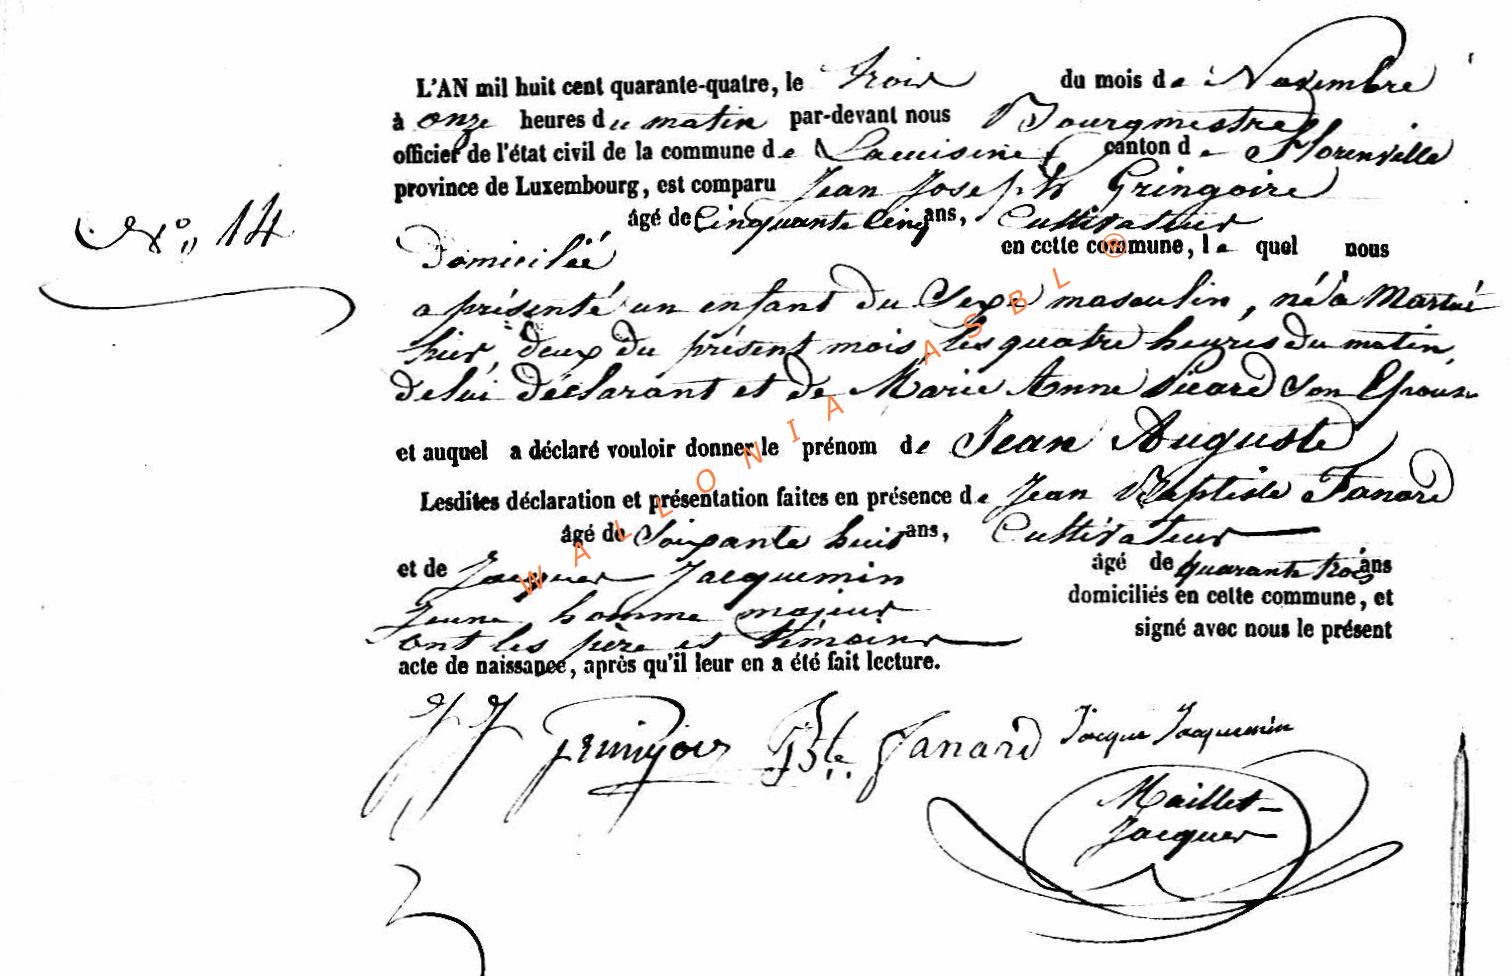 L'AN mil huit cent quarante-quatre, le trois du mois de Novembre
à onze heures du matin par-devant nous Bourgmestre
officier de l'état civil de la commune de Lacuisine, canton de Florenville
province de Luxembourg, est comparu Jean Joseph Gringoire
N° 14
âgé de Cinquante Cinq ans, Cultivateur
Domicilié en cette commune, le quel nous
a présenté un enfant du Sexe masculin, né à Martué
hier, deux du présent mois, les quatre heures du matin,
de lui déclarant et de Marie Anne Picard Son Epouse
et auquel a déclaré vouloir donner le prénom de Jean Auguste
Lesdites déclaration et présentation faites en présence de Jean Baptiste Fanard
âgé de Soixante huit ans, Cultivateur
et de Jacques Jacquemin âgé de quarante trois ans
Jeune homme majeur domiciliés en cette commune, et
ont les père et témoins signé avec nous le présent
acte de naissance, après qu'il leur en a été fait lecture.
JJ Gringoire Bte Fanard Jacque Jacquemin
Maillet-
Jacques
WALLONIA ASBL ®